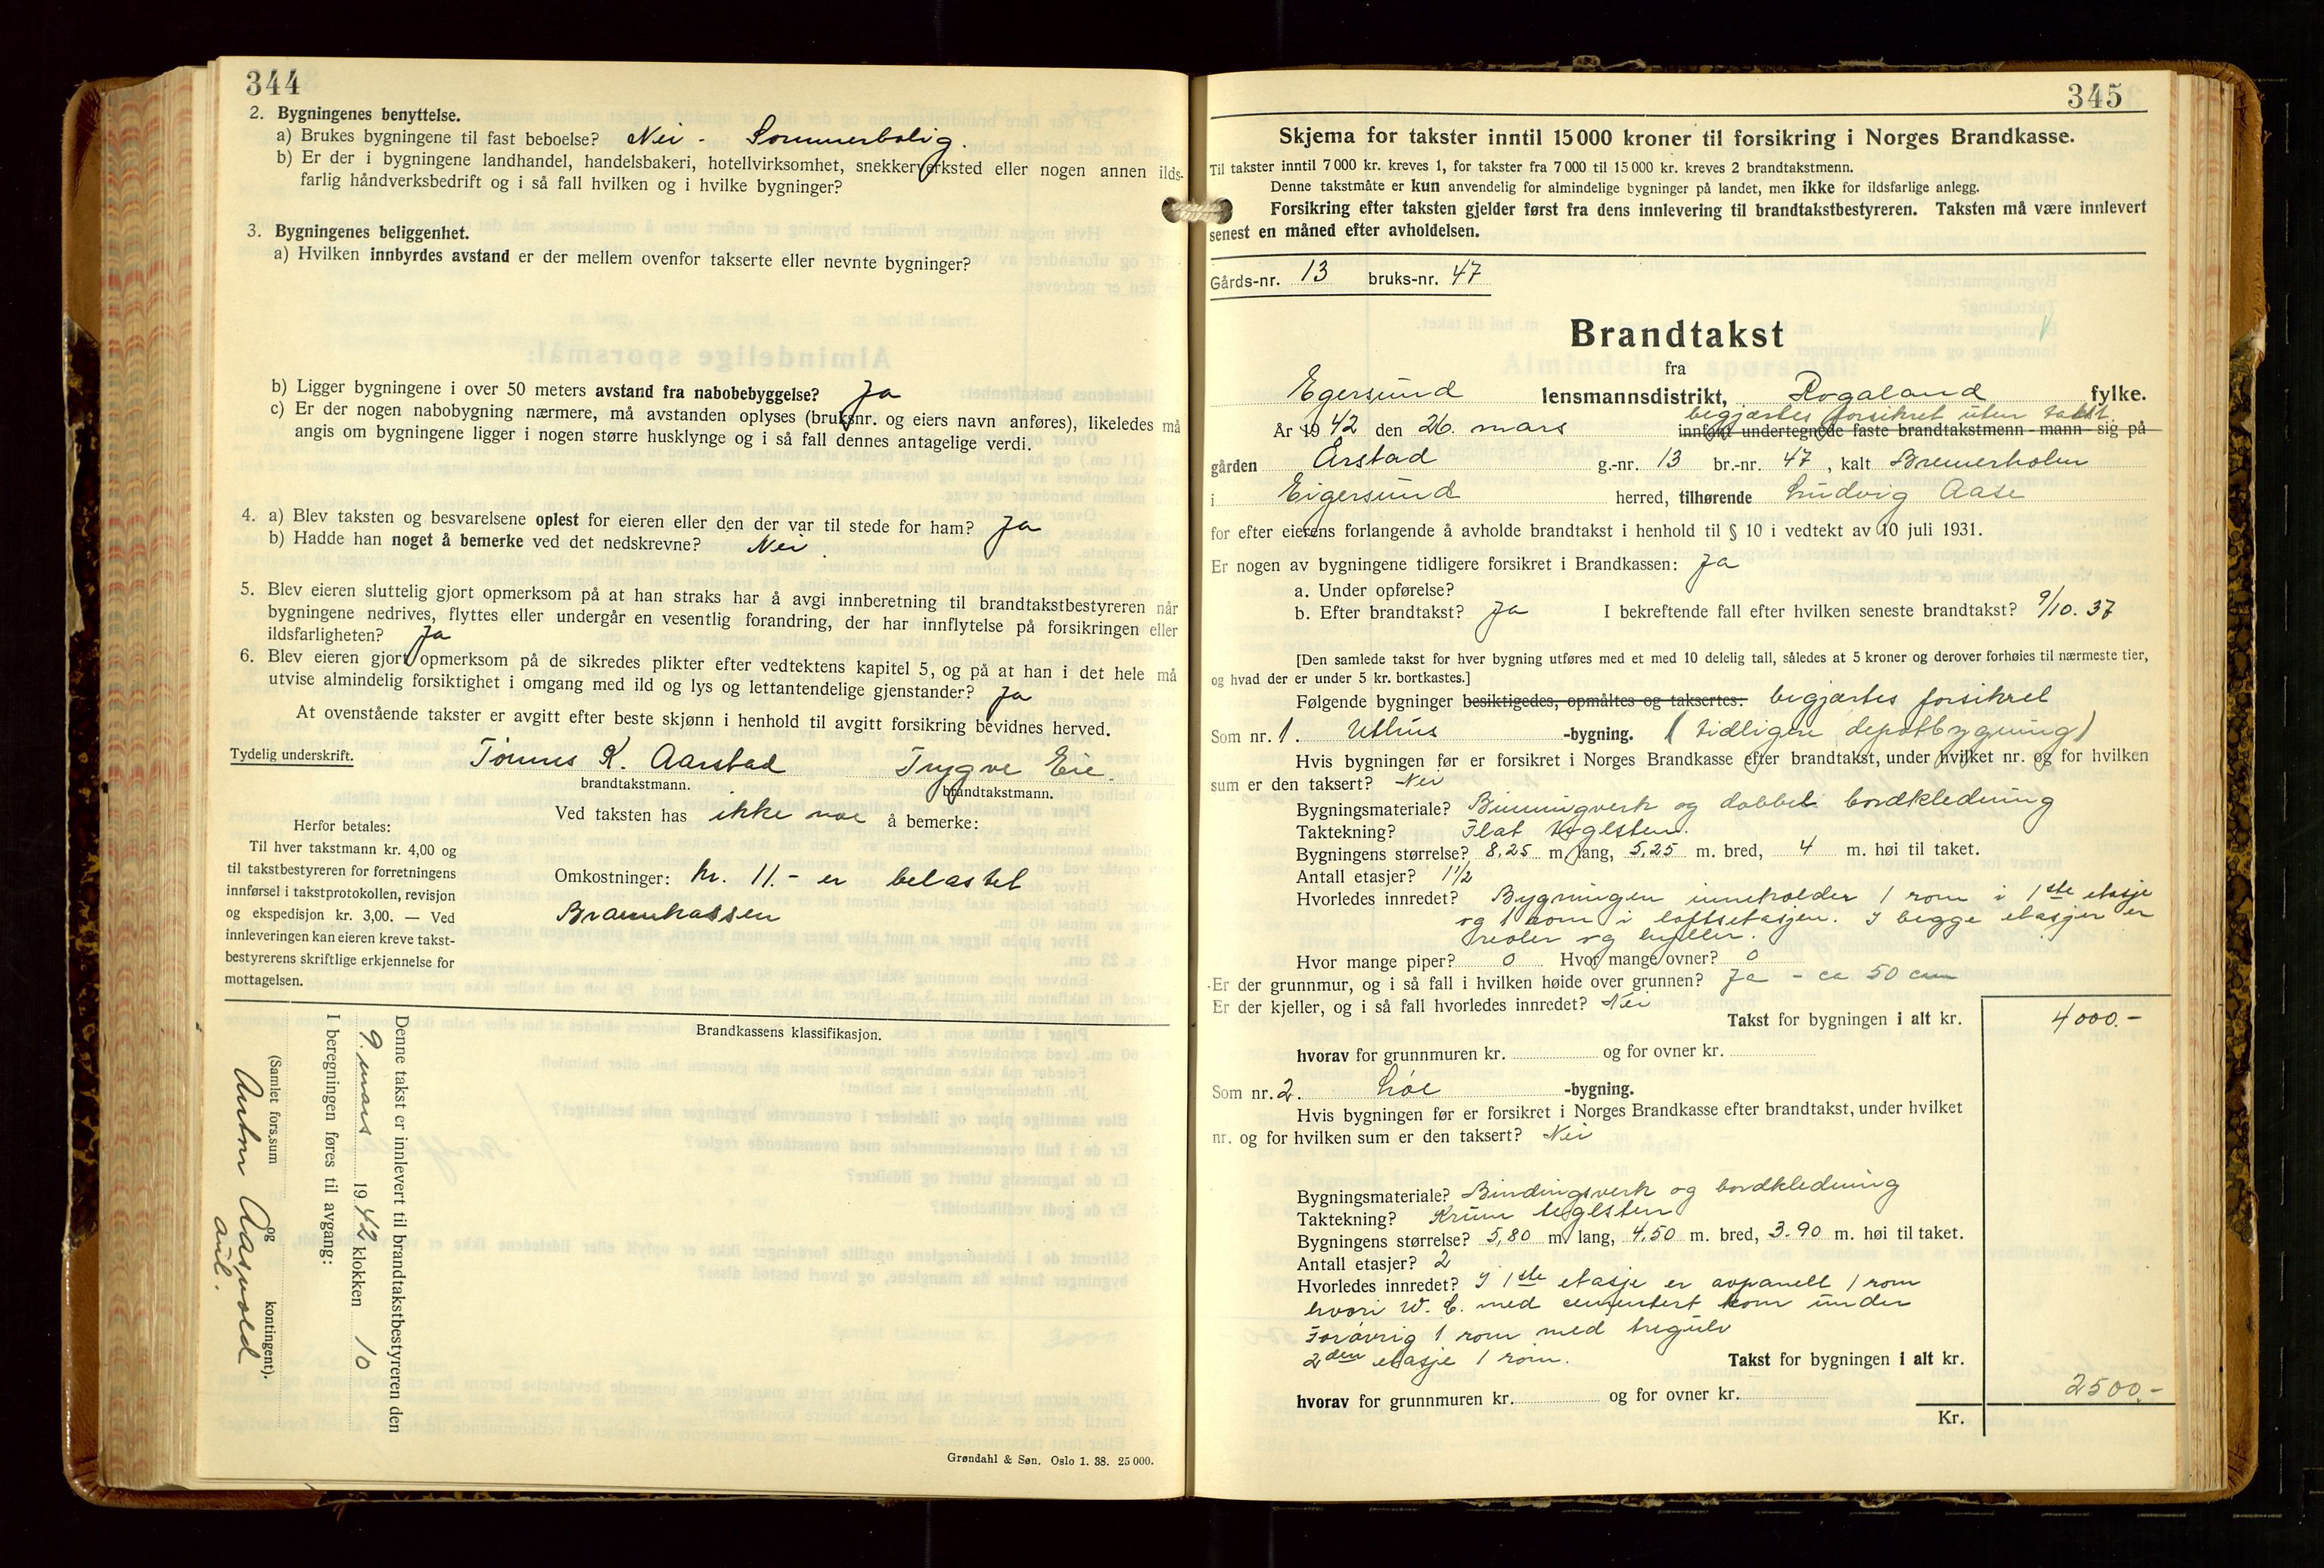 344
2. Bygningenes benyttelse.
a) Brukes bygningene til fast beboelse? Nei - Sommerbolig.
b) Er der i bygningene landhandel, handelsbakeri, hotellvirksomhet, snekkerverksted eller nogen annen ilds-
farlig håndverksbedrift og i så fall hvilken og i hvilke bygninger?
3. Bygningenes beliggenhet.
a) Hvilken innbyrdes avstand er der mellem ovenfor takserte eller nevnte bygninger?
b) Ligger bygningene i over 50 meters avstand fra nabobebyggelse? Ja
c) Er der nogen nabobygning nærmere, må avstanden oplyses (bruksnr. og eiers navn anføres), likeledes må
angis om bygningene ligger i nogen større husklynge og i så fall dennes antagelige verdi.
4. a) Blev taksten og besvarelsene oplest for eieren eller den der var til stede for ham? Ja
b) Hadde han noget å bemerke ved det nedskrevne? Nei
5. Blev eieren sluttelig gjort opmerksom på at han straks har å avgi innberetning til brandtakstbestyreren når
bygningene nedrives, flyttes eller undergår en vesentlig forandring, der har innflytelse på forsikringen eller
ildsfarligheten? Ja
6. Blev eieren gjort opmerksom på de sikredes plikter efter vedtektens kapitel 5, og på at han i det hele må
utvise almindelig forsiktighet i omgang med ild og lys og lettantendelige gjenstander? Ja
At ovenstående takster er avgitt efter beste skjønn i henhold til avgitt forsikring bevidnes herved.
Tydelig underskrift. Tønnes K. Aarstad Trygve Eie.
brandtakstmann. brandtakstmann.
Ved taksten has ikke noe å bemerke:
Herfor betales:
Til hver takstmann kr. 4,00 og
til takstbestyreren for forretningens
innførsel i takstprotokollen, revisjon
og ekspedisjon kr. 3,00. — Ved
innleveringen kan eieren kreve takst-
bestyrerens skriftlige erkjennelse for
mottagelsen.
Omkostninger: kr. 11.- er belastet
Brannkassen
Brandkassens klassifikasjon.
Denne takst er innlevert til brandtakstbestyreren den
9. mars 1942 klokken 10
I beregningen føres til avgang:
(Samlet fors.sum og kontingent).
Anton Aaspvold
aut.
Grøndahl & Søn. Oslo 1. 38. 25 000.
345
Skjema for takster inntil 15 000 kroner til forsikring i Norges Brandkasse.
Til takster inntil 7 000 kr. kreves 1, for takster fra 7 000 til 15 000 kr. kreves 2 brandtakstmenn.
Denne takstmåte er kun anvendelig for almindelige bygninger på landet, men ikke for ildsfarlige anlegg.
Forsikring efter taksten gjelder først fra dens innlevering til brandtakstbestyreren. Taksten må være innlevert
senest en måned efter avholdelsen.
Gårds-nr. 13 bruks-nr. 47
Brandtakst
fra
Egersund lensmannsdistrikt, Rogaland fylke.
begjærtes forsikret uten takst
År 1942 den 26. mars innfant undertegnede faste brandtakstmenn - mann - sig på
gården Årstad g.-nr. 13 br.-nr. 47, kalt Bremerholm
i Eigersund herred, tilhørende Ludvig Aase
for efter eierens forlangende å avholde brandtakst i henhold til § 10 i vedtekt av 10 juli 1931.
Er nogen av bygningene tidligere forsikret i Brandkassen: Ja
a. Under opførelse?
b. Efter brandtakst? Ja I bekreftende fall efter hvilken seneste brandtakst? 9/10. 37
[Den samlede takst for hver bygning utføres med et med 10 delelig tall, således at 5 kroner og derover forhøies til nærmeste tier,
og hvad der er under 5 kr. bortkastes.]
Følgende bygninger besiktigedes, opmåltes og taksertes: begjærtes forsikret
Som nr. 1. Uthus -bygning. (tidligere depotbygning)
Hvis bygningen før er forsikret i Norges Brandkasse efter brandtakst, under hvilket nr. og for hvilken
sum er den taksert? Nei
Bygningsmateriale? Binningverk og dobbel bordkledning
Taktekning? Flat teglsten.
Bygningens størrelse? 8,25 m. lang, 5,25 m. bred, 4 m. høi til taket.
Antall etasjer? 1½
Hvorledes innredet? Bygningen inneholder 1 rom i 1ste etasje
og 1 rom i loftsetasjen. I begge etasjer er
reoler og hyller.
Hvor mange piper? 0 Hvor mange ovner? 0
Er der grunnmur, og i så fall i hvilken høide over grunnen? Ja - ca 50 cm
Er der kjeller, og i så fall hvorledes innredet? Nei
Takst for bygningen i alt kr. 4000.-
hvorav for grunnmuren kr. og for ovner kr.
Som nr. 2. Løe -bygning.
Hvis bygningen før er forsikret i Norges Brandkasse efter brandtakst, under hvilket
nr. og for hvilken sum er den taksert? Nei
Bygningsmateriale? Bindingsverk og bordkledning
Taktekning? Krum teglsten
Bygningens størrelse? 5,80 m. lang, 4,50 m. bred, 3.90 m. høi til taket.
Antall etasjer? 2
Hvorledes innredet? I 1ste etasje er avpanelt 1 rom
hvori W. C. med cementert rom under
Forøvrig 1 rom med tregulv
2den etasje 1 rom. Takst for bygningen i alt kr.
2500.-
hvorav for grunnmuren kr. og for ovner kr.
Kr.